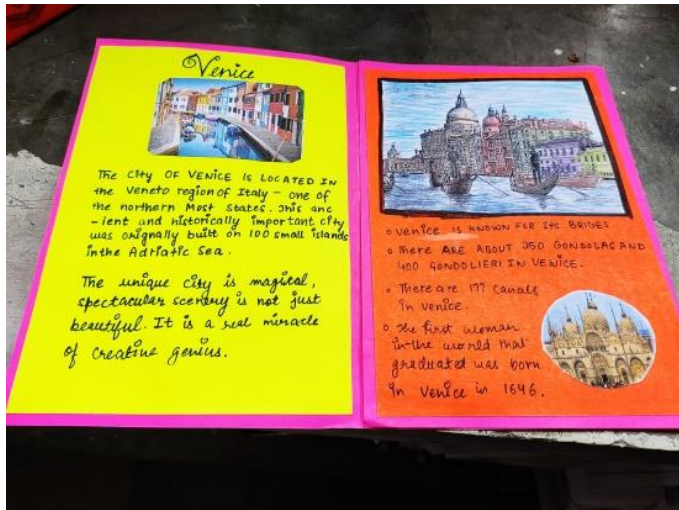 Venice
The CITY OF VENICE IS LOCATED IN
the Veneto region of Italy - one of
the northern Most States. This anc
-ient and historically important city
was orignally built on 100 small islands
in the Adriatic Sea.
The unique city is magical,
spectacular scenery is not just
beautiful. It is a real miracle
of creative genius.
o Venice IS KNOWN FOR Its BRIDES
o There ARE ABOUT 350 GONDOLAS AND
400 GONDOLIERI IN VENICE.
o There are 177 Canals
in Venice.
o The first woman
in the world that
graduated was born
in Venice in 1646.